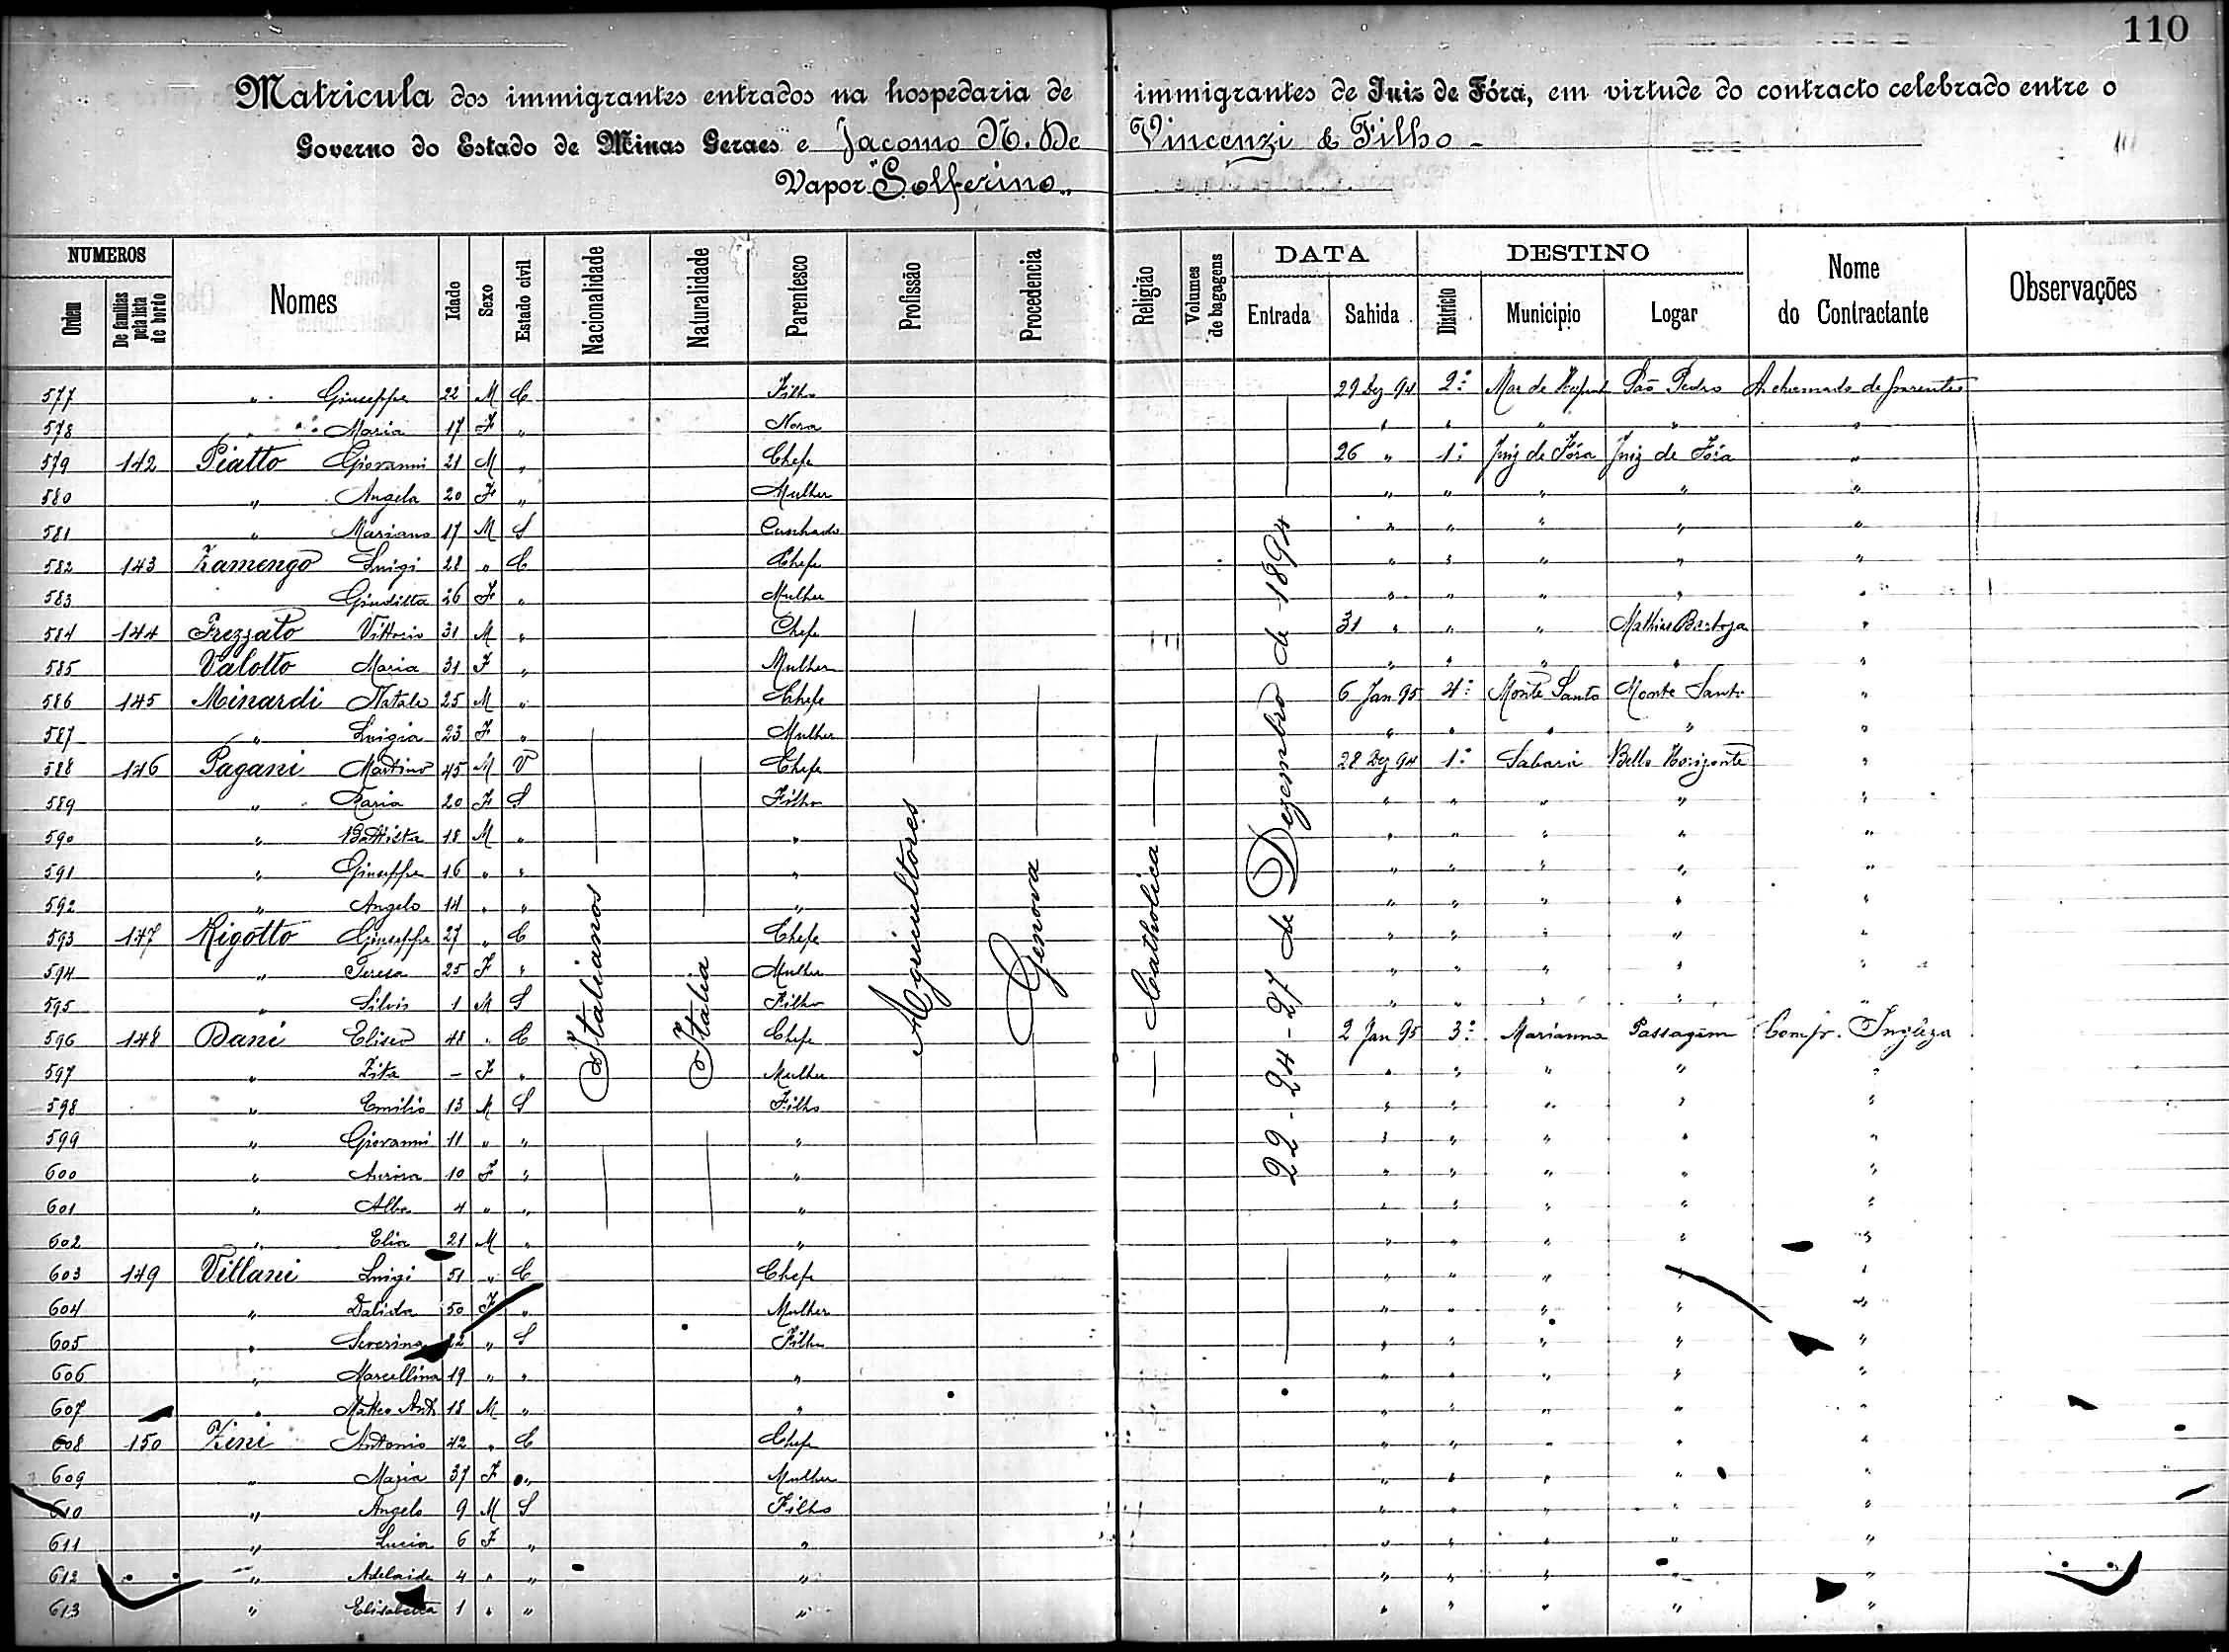 110
Matricula dos immigrantes entrados na hospedaria de immigrantes de Juiz de Fóra, em virtude do contracto celebrado entre o
Governo do Estado de Minas Geraes e Jacomo N. De Vincenzi & Filho
Vapor "Solferino"
NUMEROS Nomes Idade Sexo Estado civil Nacionalidade Naturalidade Parentesco Profissão Procedencia Religião Volumes de bagagens DATA DESTINO Nome do Contractante Observações
Ordem De familias pela lista de bordo Entrada Sahida Districto Municipio Logar
Italianos Italia Agricultores Genova Catholica 22-24-27 de Dezembro de 1894
577 " Giuseppe 22 M C Filho 29 Dez 94 2º Mar de São Pedro A chamado de parentes
578 " " Maria 17 F " Nora " " " " "
579 142 Piatto Giovanni 21 M " Chefe 26 " 1º Juiz de Fóra Juiz de Fóra "
580 " Angela 20 F " Mulher " " " " "
581 " Mariano 17 M S Cunhado " " " " "
582 143 Zamengo Luigi 28 " C Chefe " " " " "
583 Giuditta 26 F " Mulher " " " " "
584 144 Frezzato Vittorio 31 M " Chefe 31 " " " Mathias Barboza "
585 Valotto Maria 31 F " Mulher " " " " "
586 145 Minardi Natale 25 M " Chefe 6 Jan 95 4º Monte Santo Monte Santo "
587 " Luigia 23 F " Mulher " " " " "
588 146 Pagani Martino 45 M V Chefe 28 Dez 94 1º Sabará Bello Horizonte "
589 " 20 F S Filho " " " " "
590 " Battista 18 M " " " " " " "
591 " Giuseppe 16 " " " " " " " "
592 " Angelo 14 " " " " " " " "
593 147 Rigotto Giuseppe 27 " C Chefe " " " " "
594 " Teresa 25 F " Mulher " " " " "
595 " Silvio 1 M S Filho " " " " "
596 148 Dani Eliseo 48 " C Chefe 2 Jan 95 3º Marianna Passagem Comp. Ingleza
597 " Zita - F " Mulher " " " " "
598 " Emilio 13 M S Filho " " " " "
599 " Giovanni 11 " " " " " " " "
600 " Aurora 10 F " " " " " " "
601 " Alba 4 " " " " " " " "
602 " Elia 21 M " " " " " " "
603 149 Villani Luigi 51 " C Chefe " " " " "
604 " 50 F " Mulher " " " " "
605 " Severina 22 " S Filha " " " " "
606 " Marcellina 19 " " " " " " " "
607 " Matteo Ant 18 M " " " " " " "
608 150 Zini Antonio 42 " C Chefe " " " " "
609 " Maria 37 F " Mulher " " " " "
610 " Angelo 9 M S Filho " " " " "
611 " Lucia 6 F " " " " " " "
612 " Adelaide 4 " " " " " " " "
613 " Elisabetta 1 " " " " " " " "